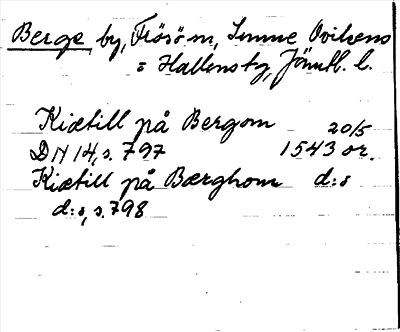 Berge, by, Frösö sn, Sunne Ovikens
= Hallens tg, Jämtl. l.
Kiætill på Bergom 20/5
DN 14, s. 797 1543 or.
Kiætill på Bærghom d:o
d:o, s. 798